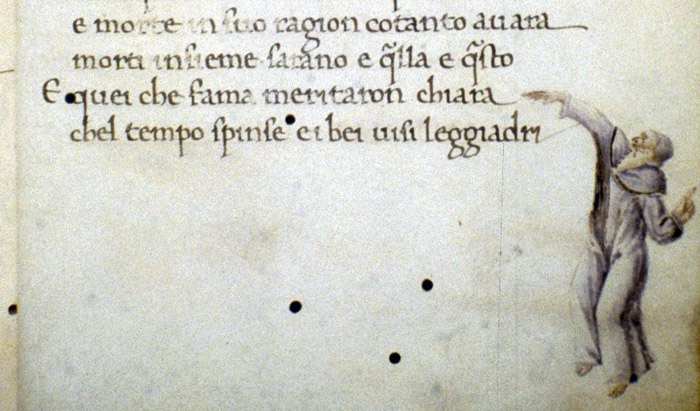 e morte in suo ragion cotanto auara
morti insieme sarano e q̃lla e q̃sto
E quei che fama meritaron chiara
chel tempo spinse e i bei uisi leggiadri